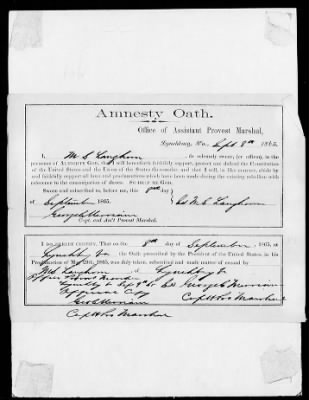 Amnesty Oath.
Office of Assistant Provost Marshal,
Lynchburg, Va., Sept 8th 1865.
I, M S Langhorn do solemnly swear, (or affirm), in the
presence of ALMIGHTY GOD, that I will henceforth faithfully support, protect and defend the Constitution
of the United States and the Union of the States thereunder, and that I will, in like manner, abide by
and faithfully support all laws and proclamations which have been made during the existing rebellion with
reference to the emancipation of slaves. SO HELP ME GOD.
Sworn and subscribed to, before me, this 8th day
of September 1865. M S Langhorn
Capt. and Ass't Provost Marshal.
I DO HEREBY CERTIFY, That on the 8th day of September, 1865, at
Lynchburg Va the Oath prescribed by the President of the United States, in his
Proclamation of May 29th, 1865, was duly taken, subscribed and made matter of record by
M S Langhorn of Lynchburg Va
Lynchburg Sept 8th
Copy
Capt Pro Marshal
Capt & Pro Marshal